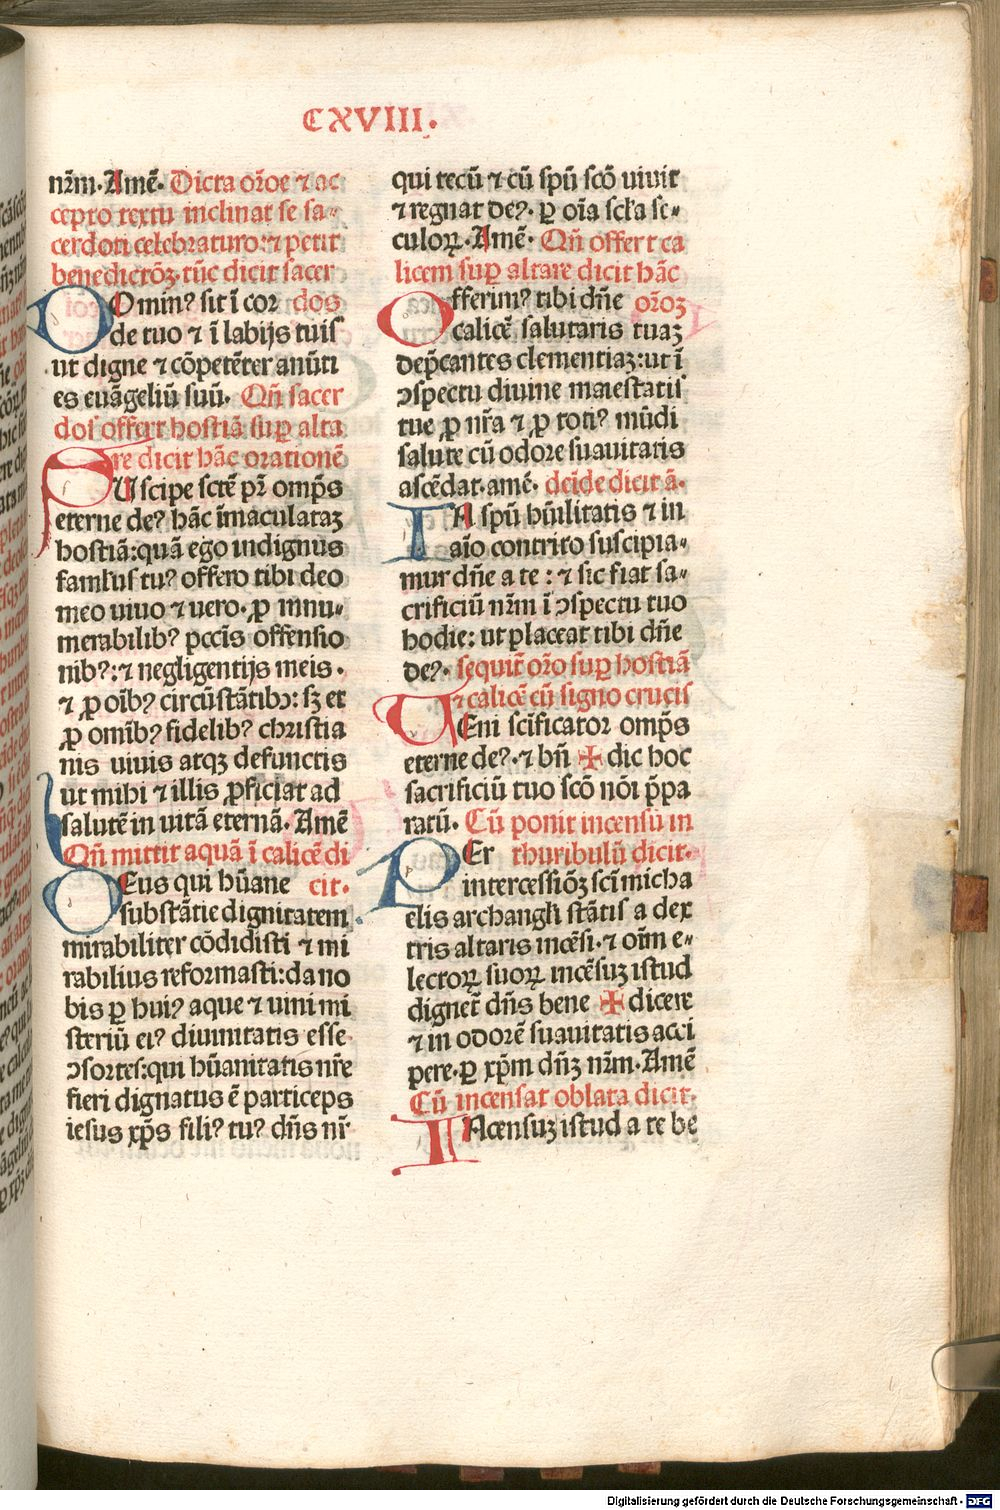 CXVIII.
nr̃m. Amẽ. Dicta orõe ⁊ ac
cepto textu inclinat se sa-
cerdoti celebraturo: ⁊ petit
benedictõꝫ. tũc dicit sacer
DOminꝰ sit ĩ cor dos
de tuo ⁊ ĩ labijs tuis
ut digne ⁊ cõpetẽter anũti
es euãgeliũ suũ. Qñ sacer
dos offert hostiã suꝑ alta
re dicit hãc orationẽ
SUscipe sctẽ pr̃ omp̃s
eterne deꝰ hãc ĩmaculataꝫ
hostiã: quã ego indignus
famlꝰus tuꝰ offero tibi deo
meo uiuo ⁊ uero. ꝓ innu-
merabilibꝰ pccĩs offensio
nibꝰ: ⁊ negligentijs meis.
⁊ ꝓ oĩbꝰ circũstãtibꝰ: sꝫ et
ꝓ omĩbꝰ fidelibꝰ christia
nis uiuis atqꝫ defunctis
ut mihi ⁊ illis ꝓficiat ad
salutẽ in uitã eternã. Amẽ
Qñ mittit aquã ĩ calicẽ di
DEus qui hũane cit.
substãtie dignitatem
mirabiliter cõdidisti ⁊ mi
rabilius reformasti: da no
bis ꝑ huiꝰ aque ⁊ uini mi
steriũ eiꝰ diuinitatis esse
ↄsortes: qui hũanitatis nr̃e
fieri dignatus ẽ particeps
iesus xp̃s filiꝰ tuꝰ dñs nr̃
qui tecũ ⁊ cũ spũ scõ uiuit
⁊ regnat deꝰ. ꝑ oĩa scła se-
culoꝝ. Amẽ. Qñ offert ca
licem suꝑ altare dicit hãc
Offerimꝰ tibi dñe orõꝫ
calicẽ salutaris tuaꝫ
dep̃cantes clementiaꝫ: ut ĩ
ↄspectu diuine maiestatis
tue ꝓ nr̃a ⁊ ꝓ totiꝰ mũdi
salute cũ odore suauitatis
ascẽdat. amẽ. deĩde dicit ã.
IN spũ hũilitatis ⁊ in
aĩo contrito suscipia-
mur dñe a te: ⁊ sic fiat sa-
crificiũ nr̃m ĩ ↄspectu tuo
hodie: ut placeat tibi dñe
deꝰ. sequit̃ orõ suꝑ hostiã
⁊ calicẽ cũ signo crucis
UEni scĩficator omp̃s
eterne deꝰ. ⁊ bñ ✠ dic hoc
sacrificiũ tuo scõ nõi p̃pa
ratũ. Cũ ponit incensũ in
PEr thuribulũ dicit.
intercessiõꝫ scĩ micha
elis archangłi stãtis a dex
tris altaris incẽsi. ⁊ oĩm e-
lectoꝝ suoꝝ incẽsuꝫ istud
dignet̃ dñs bene ✠ dicere
⁊ in odorẽ suauitatis acci
pere. ꝑ xp̃m dñꝫ nr̃m. Amẽ
Cũ incensat oblata dicit.
INcensuꝫ istud a te be
Digitalisierung gefördert durch die Deutsche Forschungsgemeinschaft - DFG